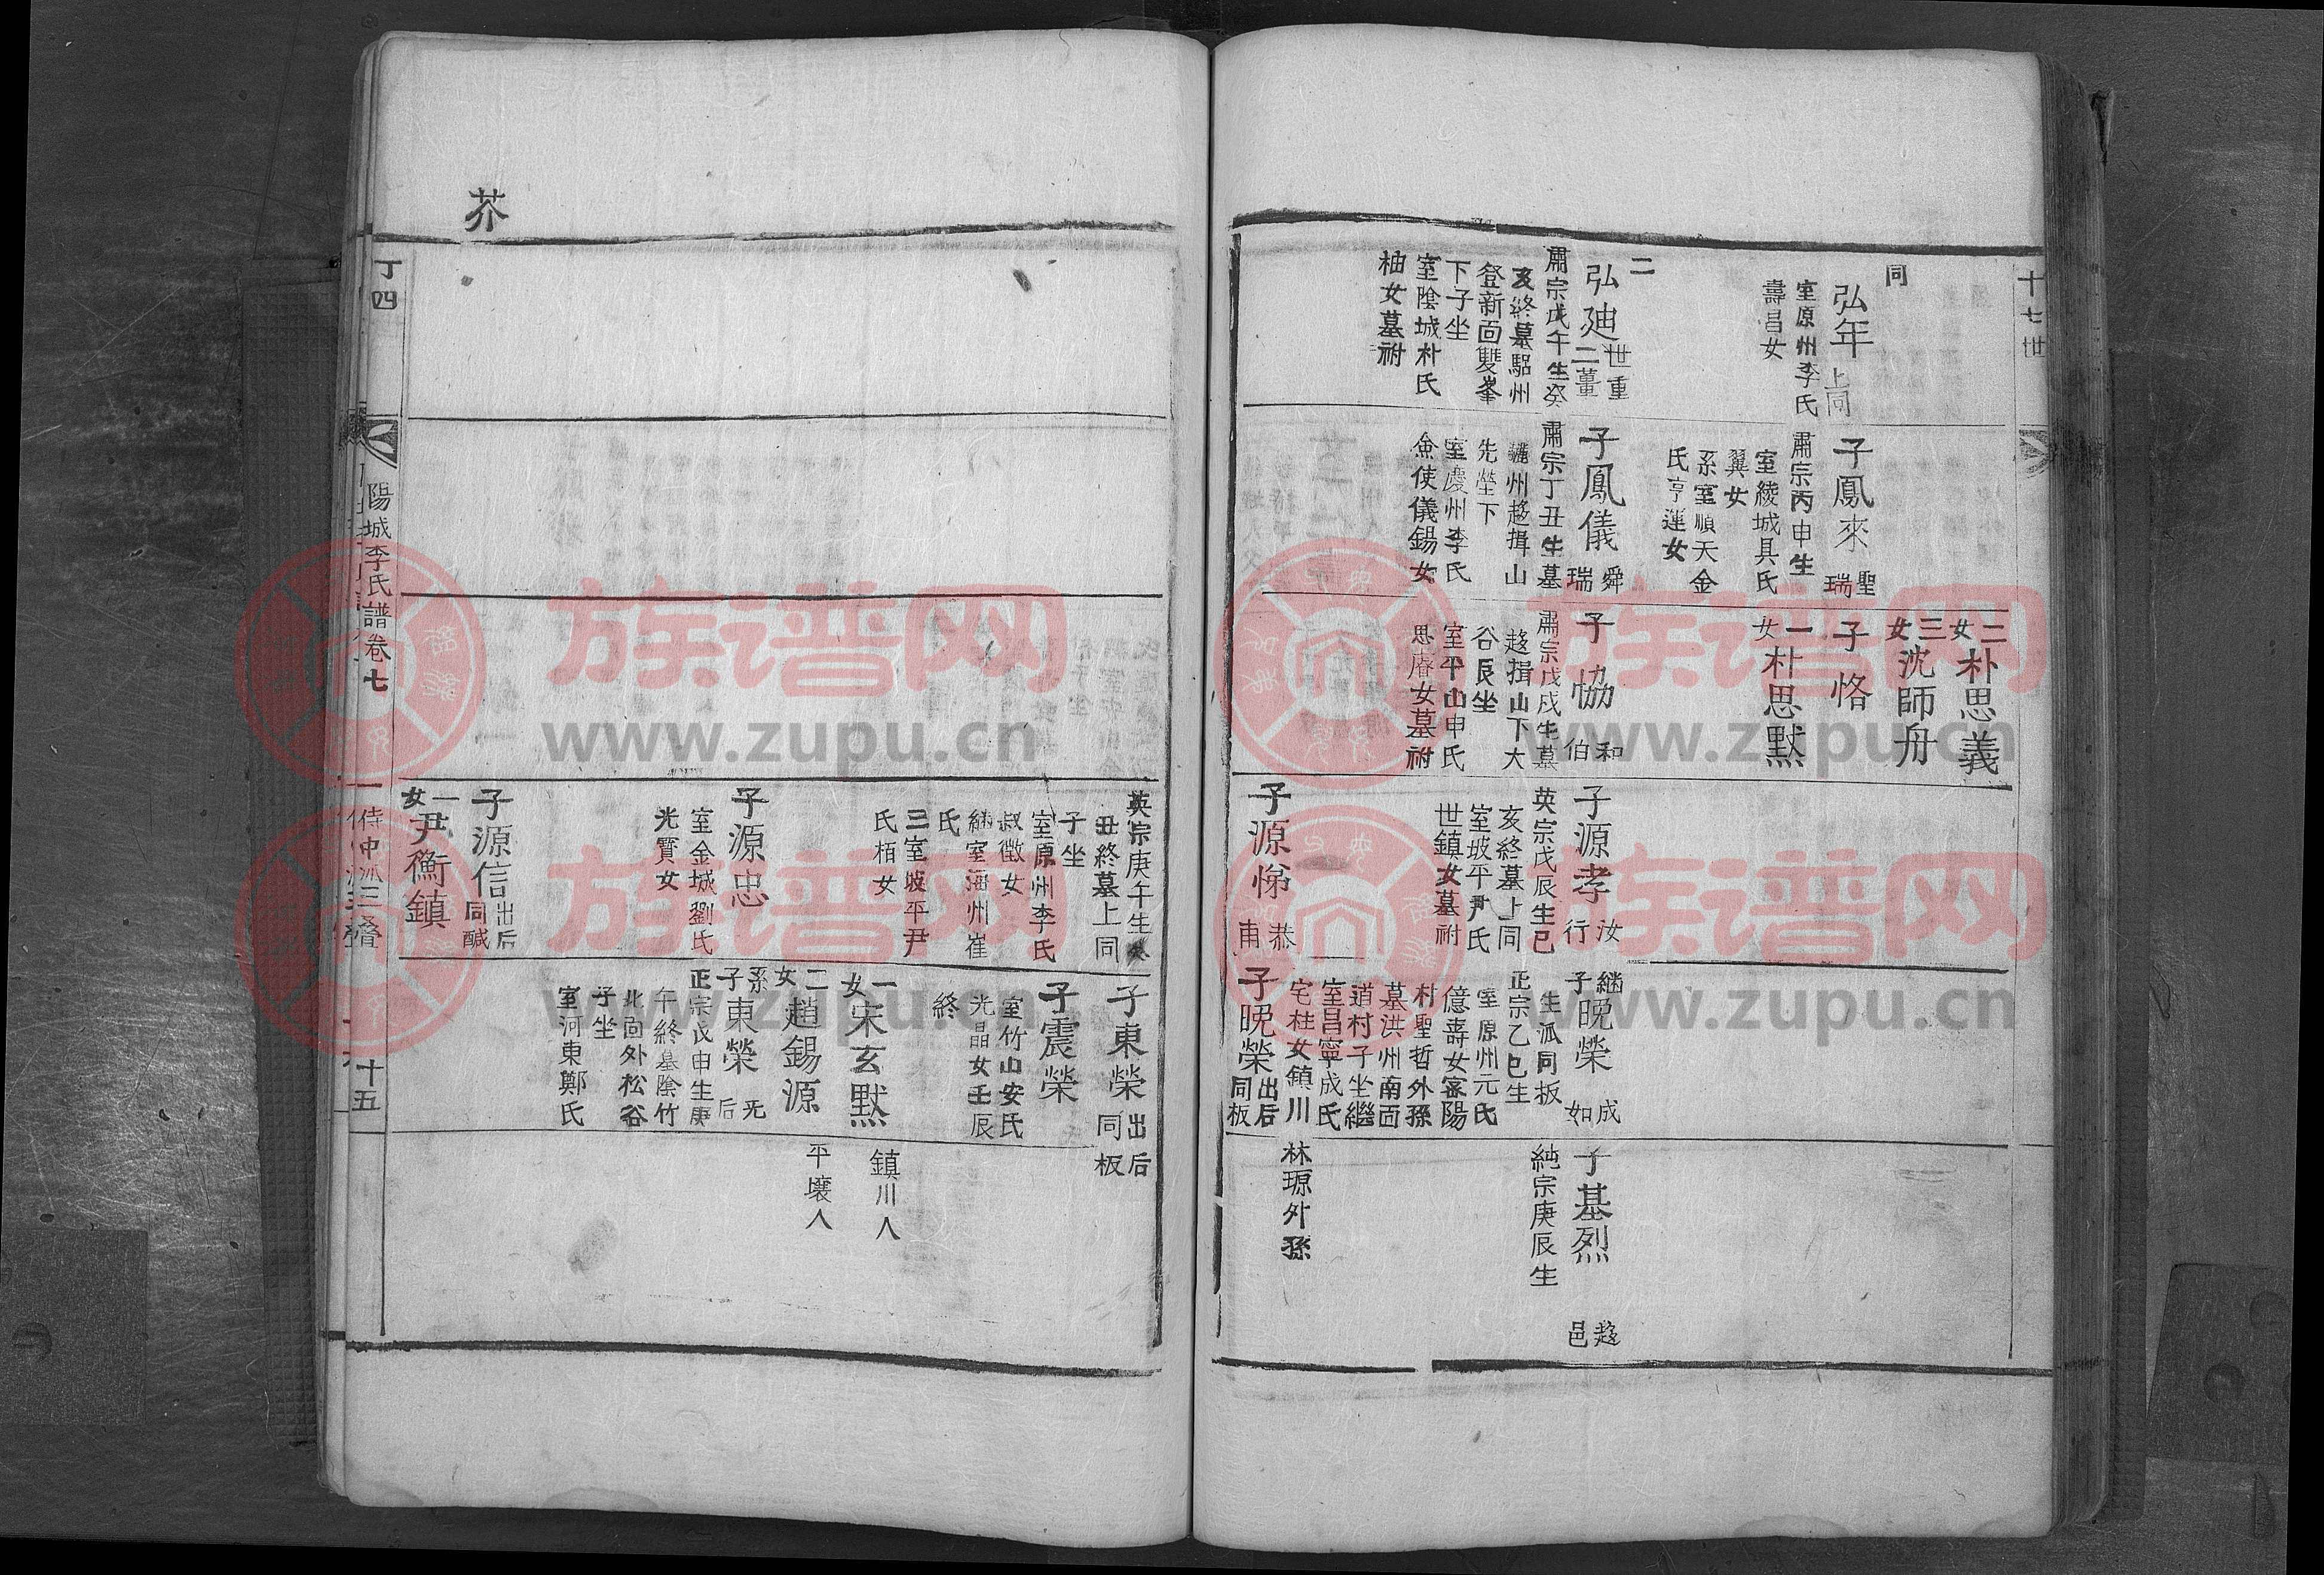 十七世
同
弘年上同
室原州李氏
壽昌女
二
弘廸世重
二薑
肅宗戊午生癸
亥終墓驪州
登新面雙峯
下子坐
室陰城朴氏
柚女墓祔
子鳳來聖瑞
肅宗丙申生
室綾城具氏
翼女
系室順天金
氏亨運女
子鳳儀舜瑞
肅宗丁丑生墓
驪州趍揖山
先塋下
室慶州李氏
僉使儀錫女
二女朴思義
三女沈師舟
子恪
一女朴思默
子恊和伯
肅宗戊戌生墓
趍揖山下大
谷艮坐
室平山申氏
思𢋡女墓祔
子源孝汝行
英宗戊辰生已
亥終墓上同
室坡平尹氏
世鎮女墓祔
子源悌恭甫
継子晩榮成如
生派同板
正宗乙巳生
室原州元氏
億壽女密陽
村聖哲外孫
墓洪州南面
道村子坐繼
室昌寧成氏
宅桂女鎮川
林㻋外孫
子晩榮出后同板
子基烈趍邑
純宗庚辰生
英宗庚午生癸
丑終墓上同
子坐
室原州李氏
叔徵女
継室海州崔
氏
三室坡平尹
氏栢女
子源忠
室金城劉氏
光賢女
子源信出后同醎
一女尹衡鎮
子東榮出后同板
子震榮
室竹山安氏
光晶女壬辰
終
一女宋玄默
鎮川人
二女趙錫源
平壤人
系子東榮旡后
正宗戊申生庚
午終墓陰竹
北面外松谷
子坐
室河東鄭氏
芥
丁四
陽城李氏譜卷七
侍中派三叠
十五
族谱网
www.zupu.cn
族谱网
www.zupu.cn
族谱网
www.zupu.cn
族谱网
www.zupu.cn